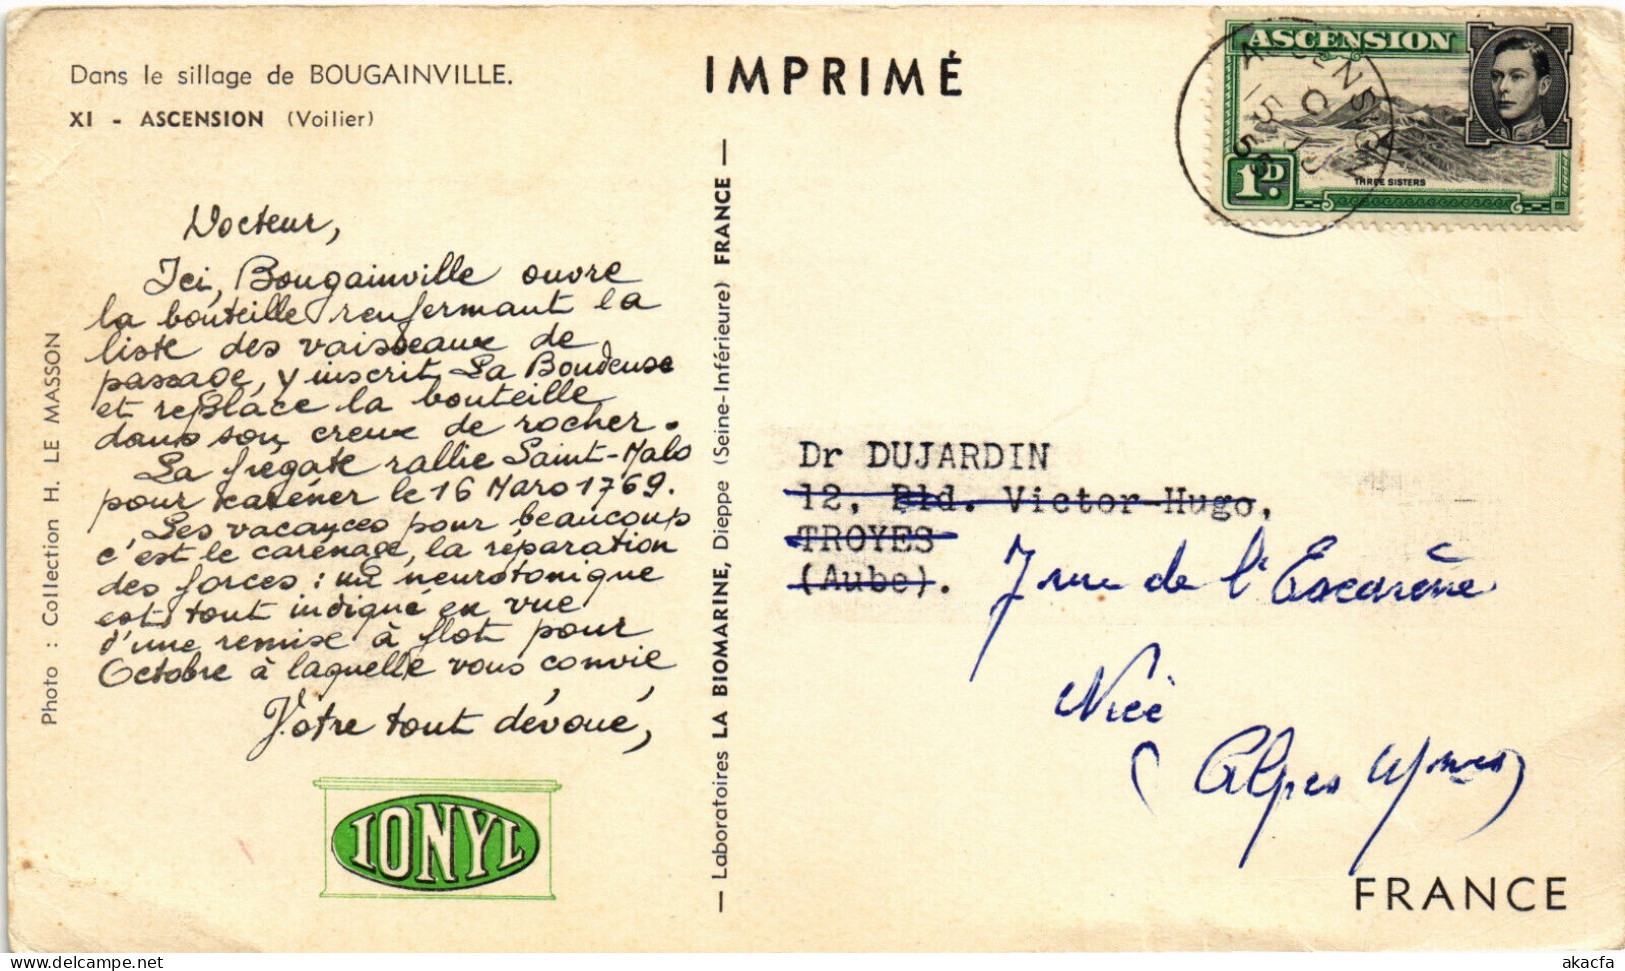 Dans le sillage de BOUGAINVILLE.
XI - ASCENSION (Voilier)
Docteur,
Ici, Bougainville ouvre
la bouteille renfermant la
liste des vaisseaux de
passage, y inscrit La Boudeuse
et replace la bouteille
dans son creux de rocher.
La frégate rallie Saint-Malo
pour caréner le 16 Mars 1769.
Les vacances pour beaucoup
c'est le carénage, la réparation
des forces : un neurotonique
est tout indiqué en vue
d'une remise à flot pour
Octobre à laquelle vous convie
Votre tout dévoué,
IONYL
Photo : Collection H. LE MASSON
— Laboratoires LA BIOMARINE, Dieppe (Seine-Inférieure) FRANCE —
IMPRIMÉ
ASCENSION
THREE SISTERS
1D.
ASCENSION
Dr DUJARDIN
12, Bld. Victor-Hugo,
TROYES
(Aube).
7 rue de l'Escarène
Nice
(Alpes Mmes)
FRANCE
akacfa